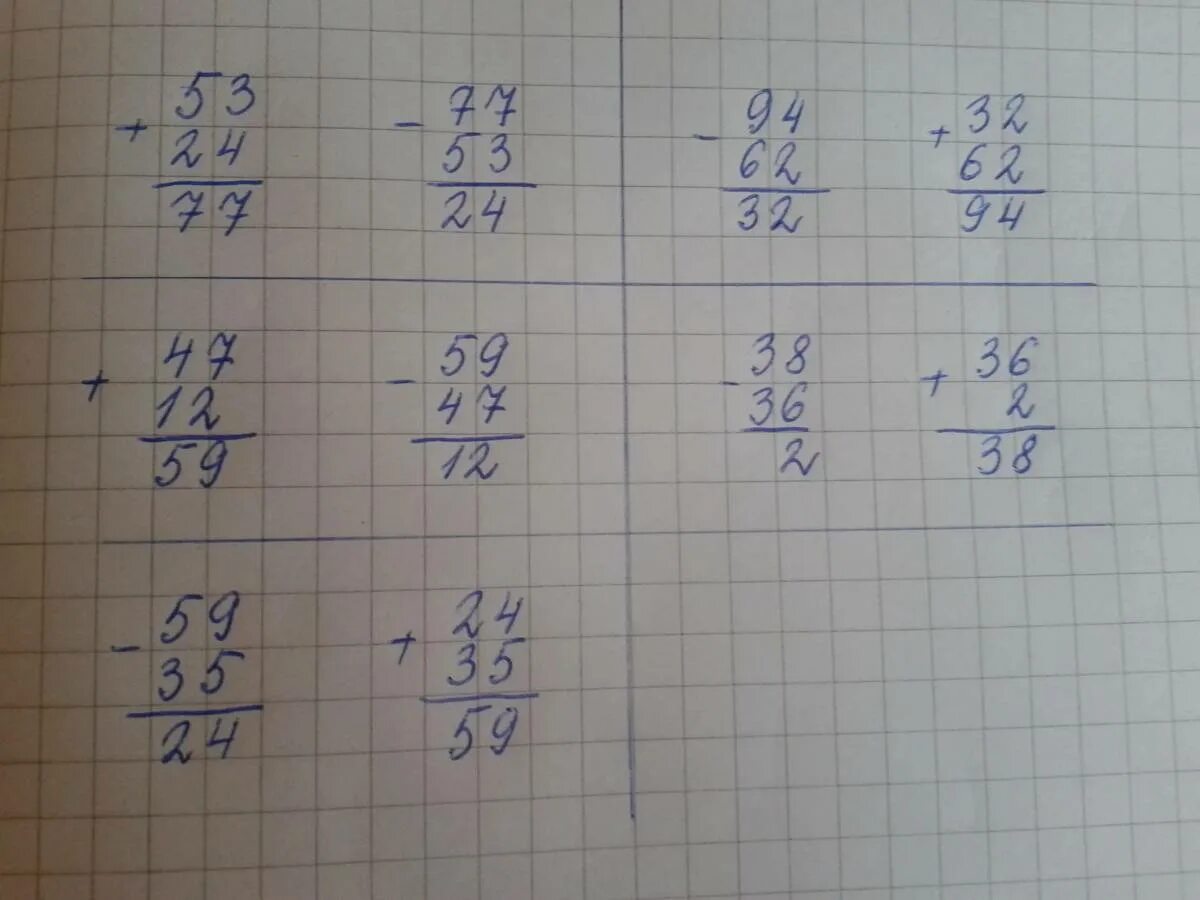 + 53   - 77   - 94   + 32
24   53   62   62
77   24   32   94
+ 47   - 59   - 38   + 36
12   47   36   2
59   12   2   38
- 59   + 24
35   35
24   59